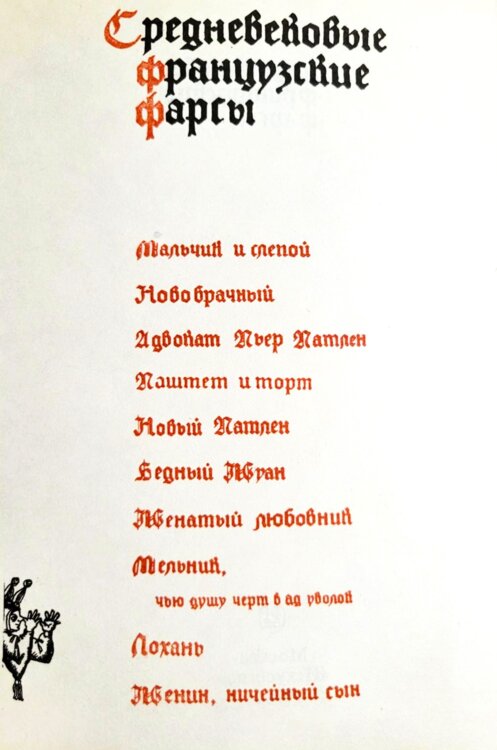 Средневековые
французские
фарсы
Мальчик и слепой
Новобрачный
Адвокат Пьер Патлен
Паштет и торт
Новый Патлен
Бедный Жуан
Женатый любовник
Мельник,
чью душу черт в ад уволок
Лохань
Женин, ничейный сын